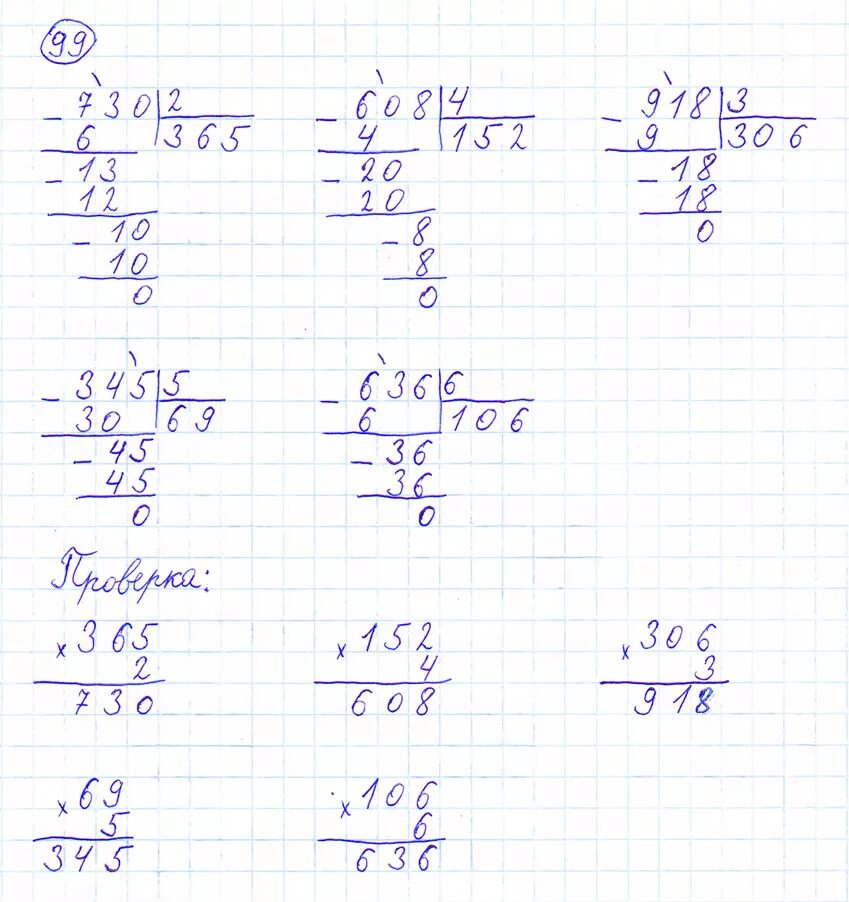 99
- 730 2 - 608 4 - 918 3
6 365 4 152 9 306
- 13 - 20 - 18
12 20 18
- 10 - 8 0
10 8
0 0
- 345 5 - 636 6
30 69 6 106
- 45 - 36
45 36
0 0
Проверка:
x 365 x 152 x 306
2 4 3
730 608 918
x 69 x 106
5 6
345 636